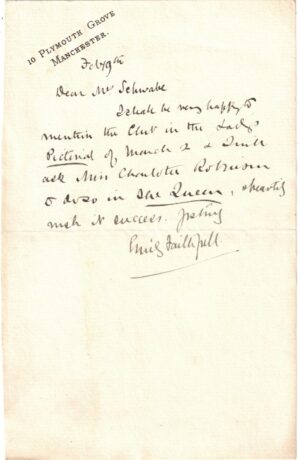 10 PLYMOUTH GROVE
MANCHESTER.
Feb 9th
Dear Mr Schwabe
I shall be very happy to
mention the Club in the Lady's
Pictorial of March 2 & I will
ask Miss Charlotte Robinson
to do so in The Queen, & heartily
wish it success.
Emily Faithfull